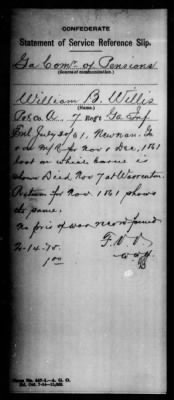 CONFEDERATE
Statement of Service Reference Slip.
Ga Comr. of Pensions
(Source of communication.)
William B. Willis
(Name.)
Pvt. Co. A. 7 Regt Ga Inf
Enl July 30/61, Newnan. Ga
on M/R for Nov & Dec, 1861
last on which borne is
shown Died Nov 7 at Warrenton
Return for Nov 1861 shows
the same.
No pris of war record found